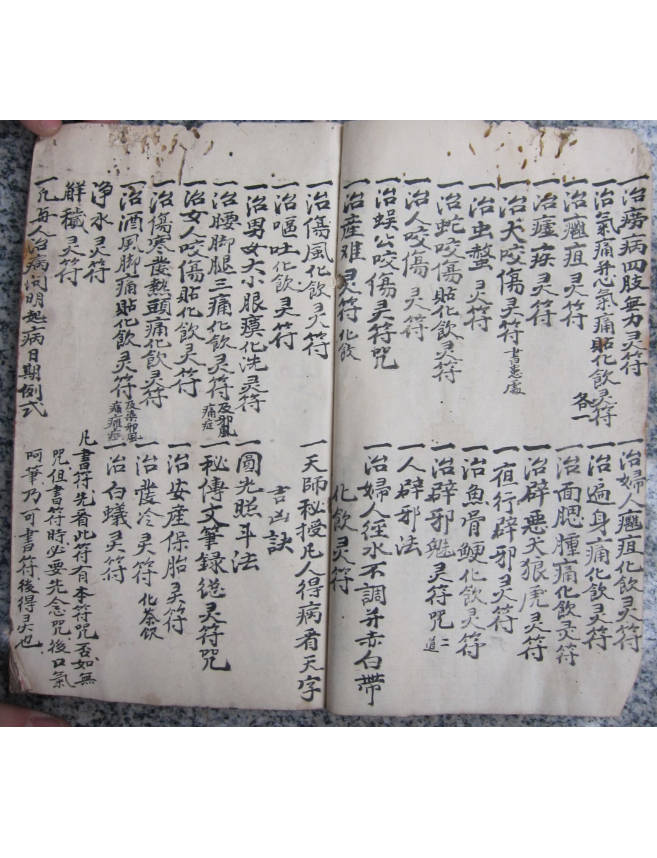 一治癆病四肢無力灵符
一治氣痛并心氣痛貼化飲灵符各一
一治癰疽灵符
一治瘧疾灵符
一治犬咬傷灵符書患處
一治虫螫灵符
一治蛇咬傷貼化飲灵符
一治人咬傷灵符
一治蜈公咬傷灵符咒
一治産难灵符化飲
一治婦人癰疽化飲灵符
一治遍身痛化飲灵符
一治面腮腫痛化飲灵符
一治辟悪犬狼虎灵符
一夜行辟邪灵符
一治魚骨鯁化飲灵符
一治辟邪魃灵符咒二道
一人辟邪法
一治婦人經水不調并赤白帶
化飲灵符
一治傷風化飲灵符
一治嘔吐化飲灵符
一治男女大小眼瘼化洗灵符
一治腰脚腿三痛化飲灵符及邪風痛症
一治女人咬傷貼化飲灵符
一治傷寒發熱頭痛化飲灵符
一治酒風脚痛貼化飲灵符及染邪風痛瘫症
淨水灵符
解穢灵符
一凡与人治病问明起病日期例式
一天師秘授凡人得病看天字
吉凶訣
一圓光照斗法
一秘傳文筆録總灵符咒
一治安産保胎灵符
一治發冷灵符化茶飲
一治白蟻灵符
凡書符先看此符有本符咒否如無
咒但書符時必要先念咒後口氣
呵筆乃可書符後得灵也